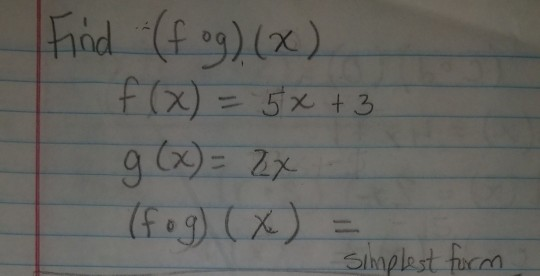 Find (f∘g)(x)
f(x) = 5x + 3
g(x) = 2x
(f∘g)(x) =
simplest form